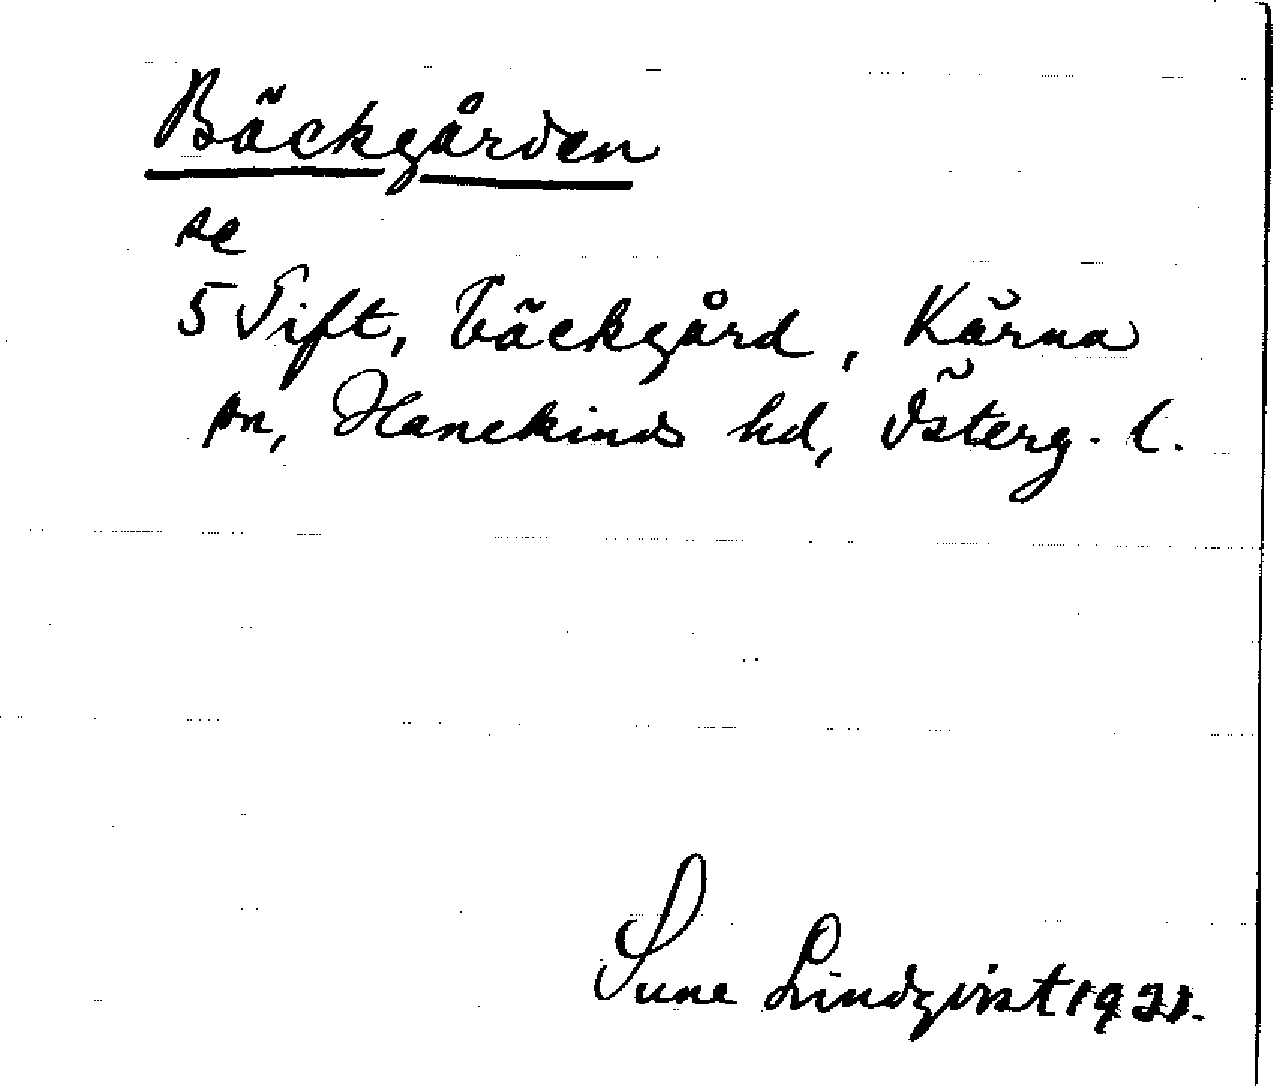 Bäckgården
se
5 Tift, bäckgård, Kärna
sn, Hanekinds hd, Österg. l.
Sune Lindqvist 1921.